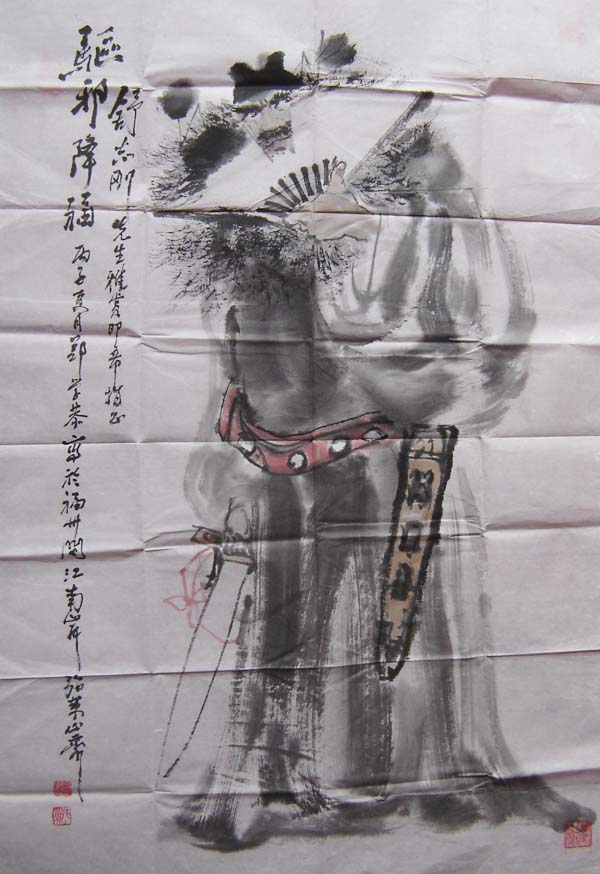 驅邪降福 丙子夏月鄭学恭寫於福州閩江南岸
舒志刚先生雅賞即希指正